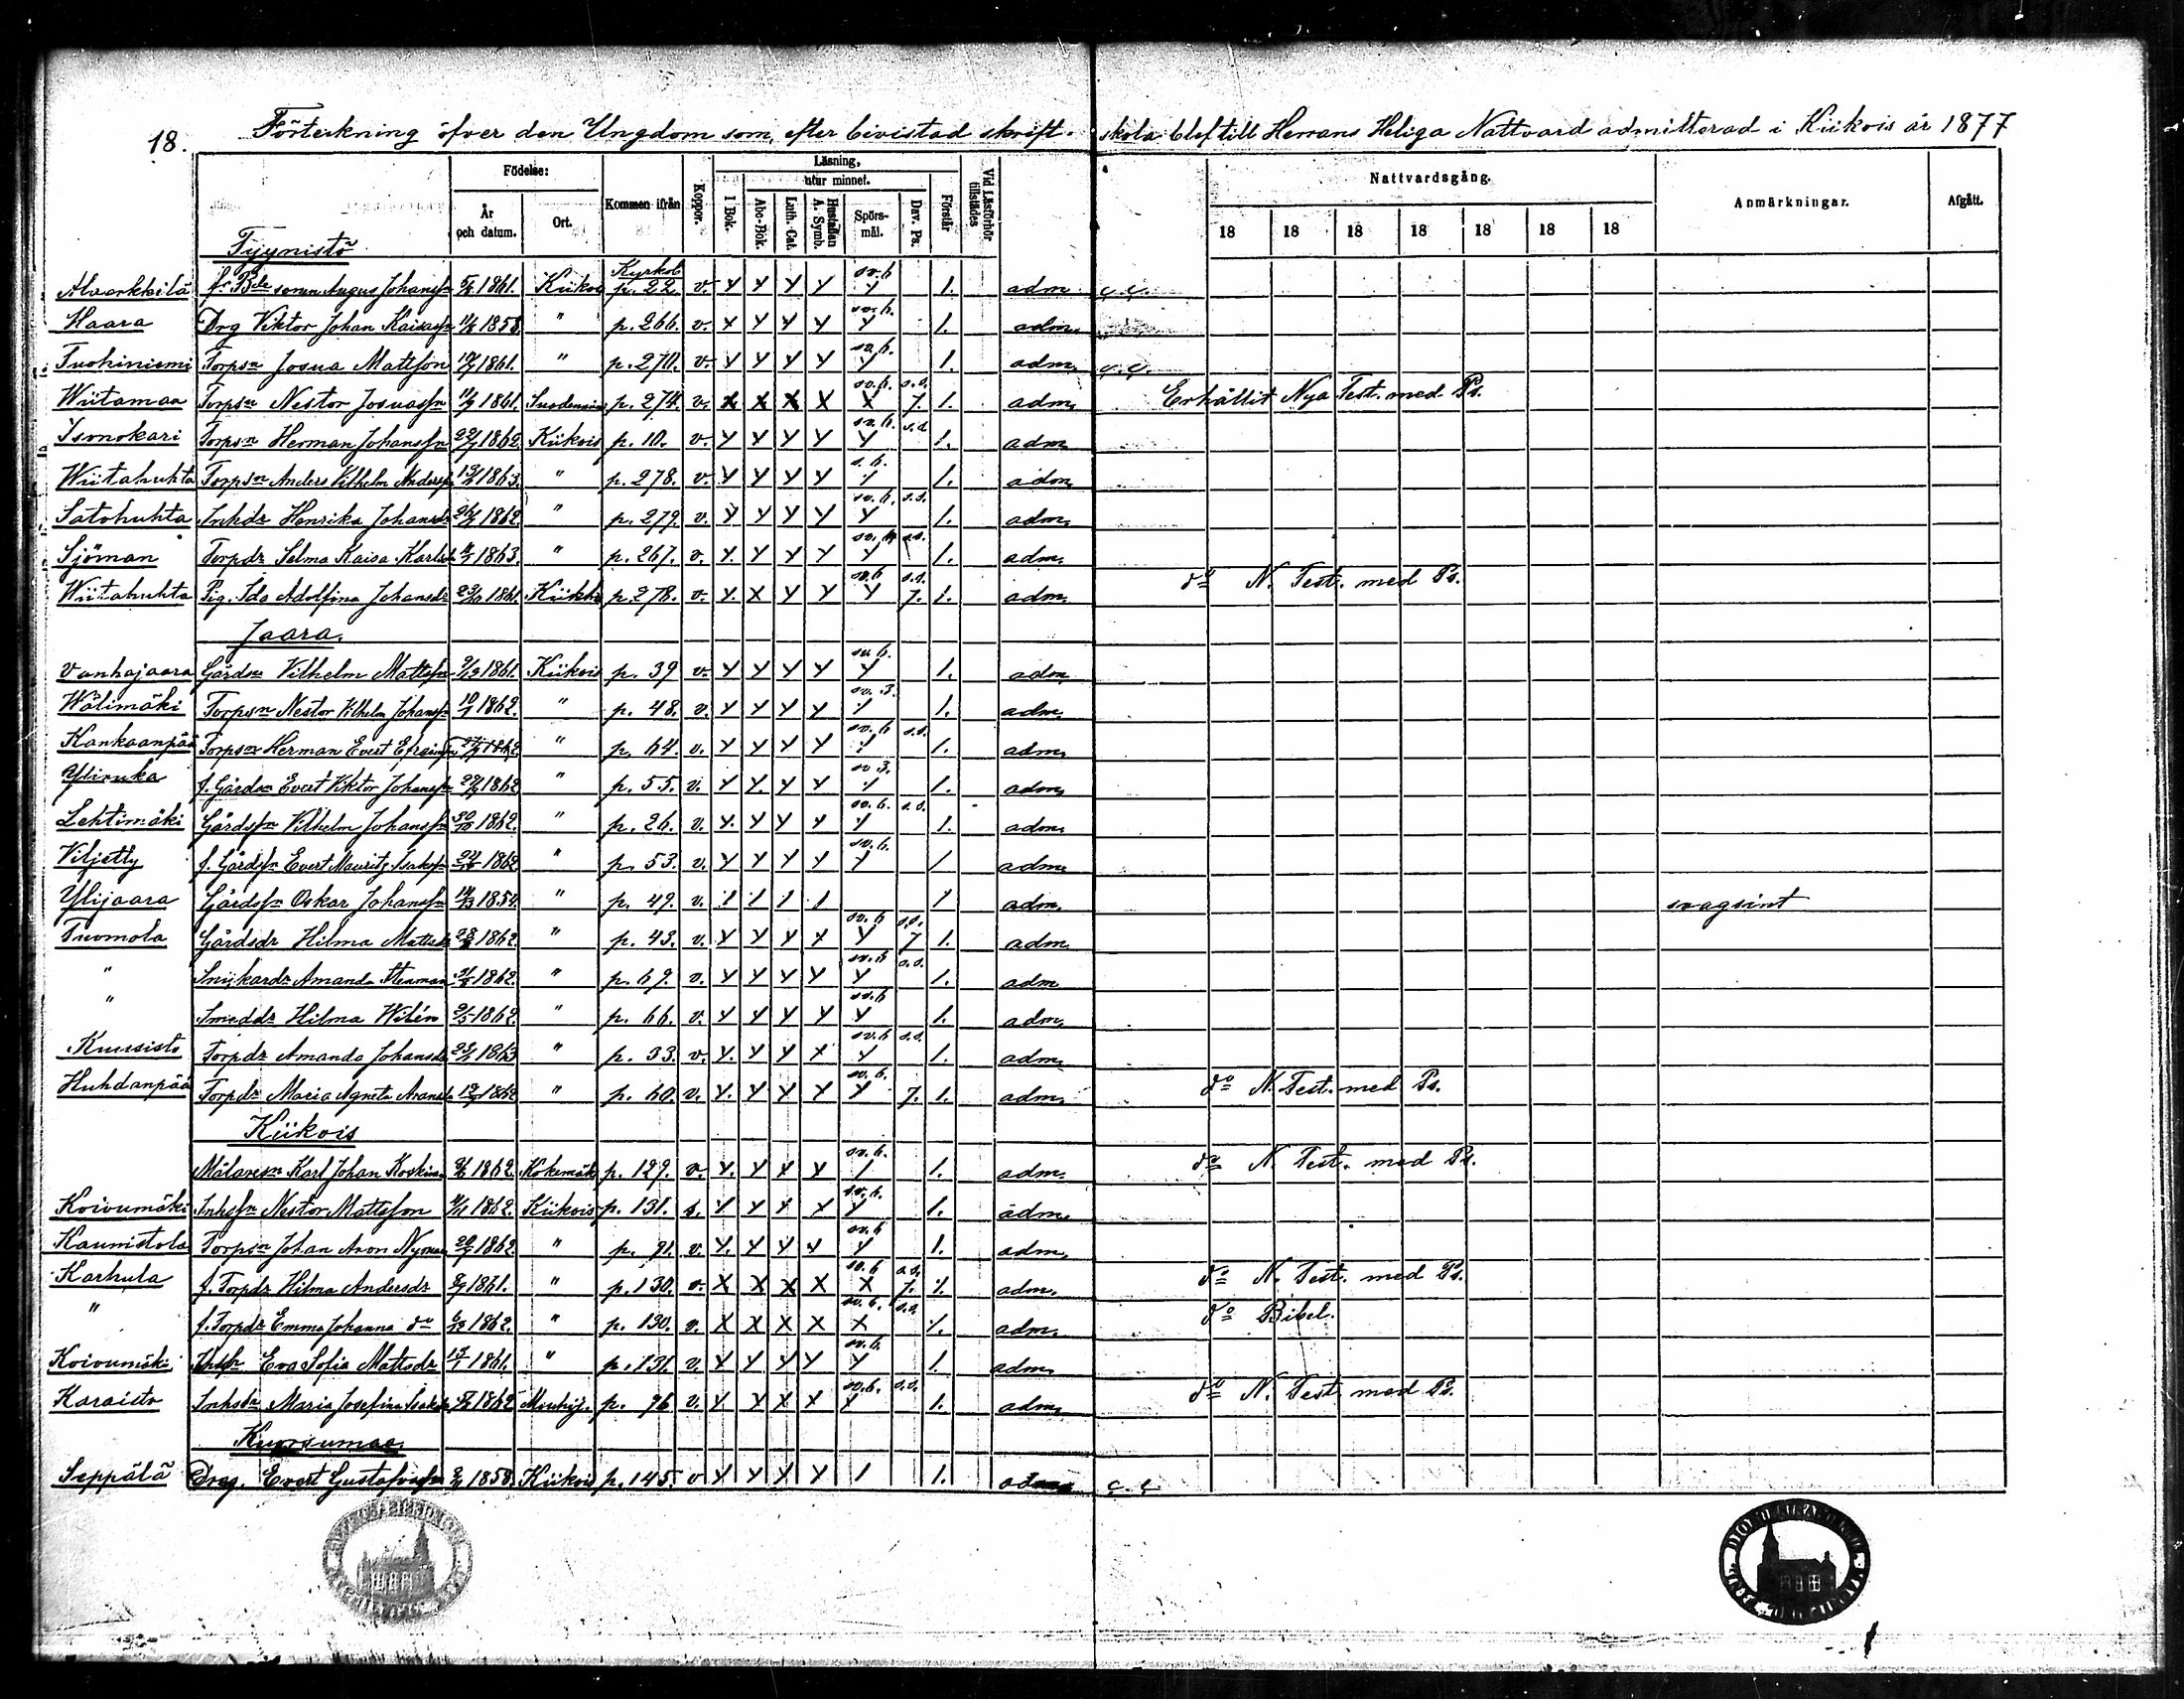 18. Förteckning öfver den Ungdom som, efter bivistad skrift-skola blef till Herrans Heliga Nattvard admitterad i Kiikois år 1877
Födelse: År och datum. Ort. Kommen ifrån Koppor. Läsning, I Bok. utur minnet. Abc-Bok. Luth. Cat. Hustaflan A. Symb. Spörs-mål. Dav. Ps. Förstår Vid Läsförhör tillstädes Nattvardsgång. 18 18 18 18 18 18 18 Anmärkningar. Afgått.
Tyynistö
Kyrkob
Johansfn 1861. Kiikois p. 22. v. Y Y Y Y sv. 6 Y 1. adm
Haara Drg Viktor Johan 1858. " p. 266. v. Y Y Y Y sv. 6. Y 1. adm.
Tuohiniemi Torpsn Josua Mattson 1861. " p. 270. v. Y Y Y Y sv. 6. Y 1. adm.
Wiitamaa Torpsn Nestor Josuasfn 1861. p. 274. v. X X X X sv. 6. X s.s. 7. 1. adm. Erhållit Nya Test. med Ps.
Isonokari Torpsn Herman Johansfn 1862. Kiikois p. 10. v. Y Y Y Y sv. 6. Y s.s. 1. adm
Wiitahuhta Torpsn Anders Vilhelm Andersfn 1863. " p. 278. v. Y Y Y Y 1. adm.
Satohuhta Inhdr Henrika Johansdr 1862. " p. 279. v. Y Y Y Y sv. 6. Y s.s. 1. adm.
Sjöman Torpdr Selma Kaisa Karlsdr 1863. " p. 267. v. Y. Y Y Y Y s.s. 1. adm.
Wiitahuhta Pig. Ida Adolfina Johansdr 1861. p. 278. v. Y. X Y Y sv. 6 Y s.s. 7. 1. adm. do N. Test. med Ps.
Jaara.
Vanhajaara Gårdsn Vilhelm Mattsfn 1861. Kiikois p. 39 v. Y Y Y Y sv. 6. Y 1. adm
Wälimäki Torpsn Nestor Vilhelm Johansfn 1862. " p. 48. v. Y Y Y Y sv. 3. 1. adm.
Kankaanpää Torpsn Herman Evert 1862. " p. 64. v. Y Y Y Y sv. 6 s.s. 1. adm.
f. Gårdsn Evert Viktor Johansfn 1862 " p. 55. v. Y Y. Y Y sv 3. 1. adm.
Lehtimäki Gårdsfn Vilhelm Johansfn 1862. " p. 26. v. Y. Y Y Y sv. 6. Y s.s. 1. adm.
Viljetty f. Gårdsfn Evert Mauritz Isaksfn 1862 " p. 53. v. Y Y Y Y sv. 6. Y 1 adm
Ylijaara Gårdsfn Oskar Johansfn 1854. " p. 49. v. 1 1 1 1 1 adm. svagsint
Tuomola Gårdsdr Hilma Mattsdr 1862. " p. 43. v. Y Y Y Y sv. 6 Y s.s. 7 1. adm.
" Snickardr Amanda Stenman 1862. " p. 69. v. Y Y Y Y sv. 6 Y s.s. 1. adm
" Smeddr Hilma Wilén 1862. " p. 66. v. Y Y Y Y sv. 6 Y 1. adm.
Kuusisto Torpdr Amanda Johansdr 1863 " p. 33. v. Y. Y Y Y sv. 6 Y s.s. 1. adm.
Huhdanpää Torpdr Maria Agneta 1862 " p. 60. v. Y. Y Y Y sv. 6. Y 7. 1. adm. do N. Test. med Ps.
Kiikois
Målaresn Karl Johan Koskinen 1862. Kokemäki p. 129. v. Y. Y Y Y sv. 6. 1 1. adm. do N. Test. med Ps.
Koivumäki Inhsfn Nestor Mattsson 1862. Kiikois p. 131. s. Y Y Y Y sv. 6. Y 1. adm.
Kaunistola Torpsn Johan Aron Nyman 1862 " p. 91. v. Y. Y Y Y sv. 6 Y 1. adm.
Karhula f. Torpdr Hilma Andersdr 1861. " p. 130. v. X X X X sv. 6 X s.s. 7. 1. adm. do N. Test. med Ps.
" f. Torpdr Emma Johanna do 1862. " p. 130. v. X X X X sv. 6. X s.s. 1. adm. do Bibel.
Koivumäki Eva Sofia Mattsdr 1861. " p. 131. v. Y Y Y Y sv. 6. Y 1. adm.
Karaisto Inhsdr Maria Josefina Isaksdr 1862 Mouhij. p. 96 v. Y Y X X sv. 6. Y s.s. 1. adm. do N. Test. med Ps.
Kuorsumaa.
Seppälä Drag. Evert 1858. Kiikois p. 145. v Y Y Y Y 1 1.